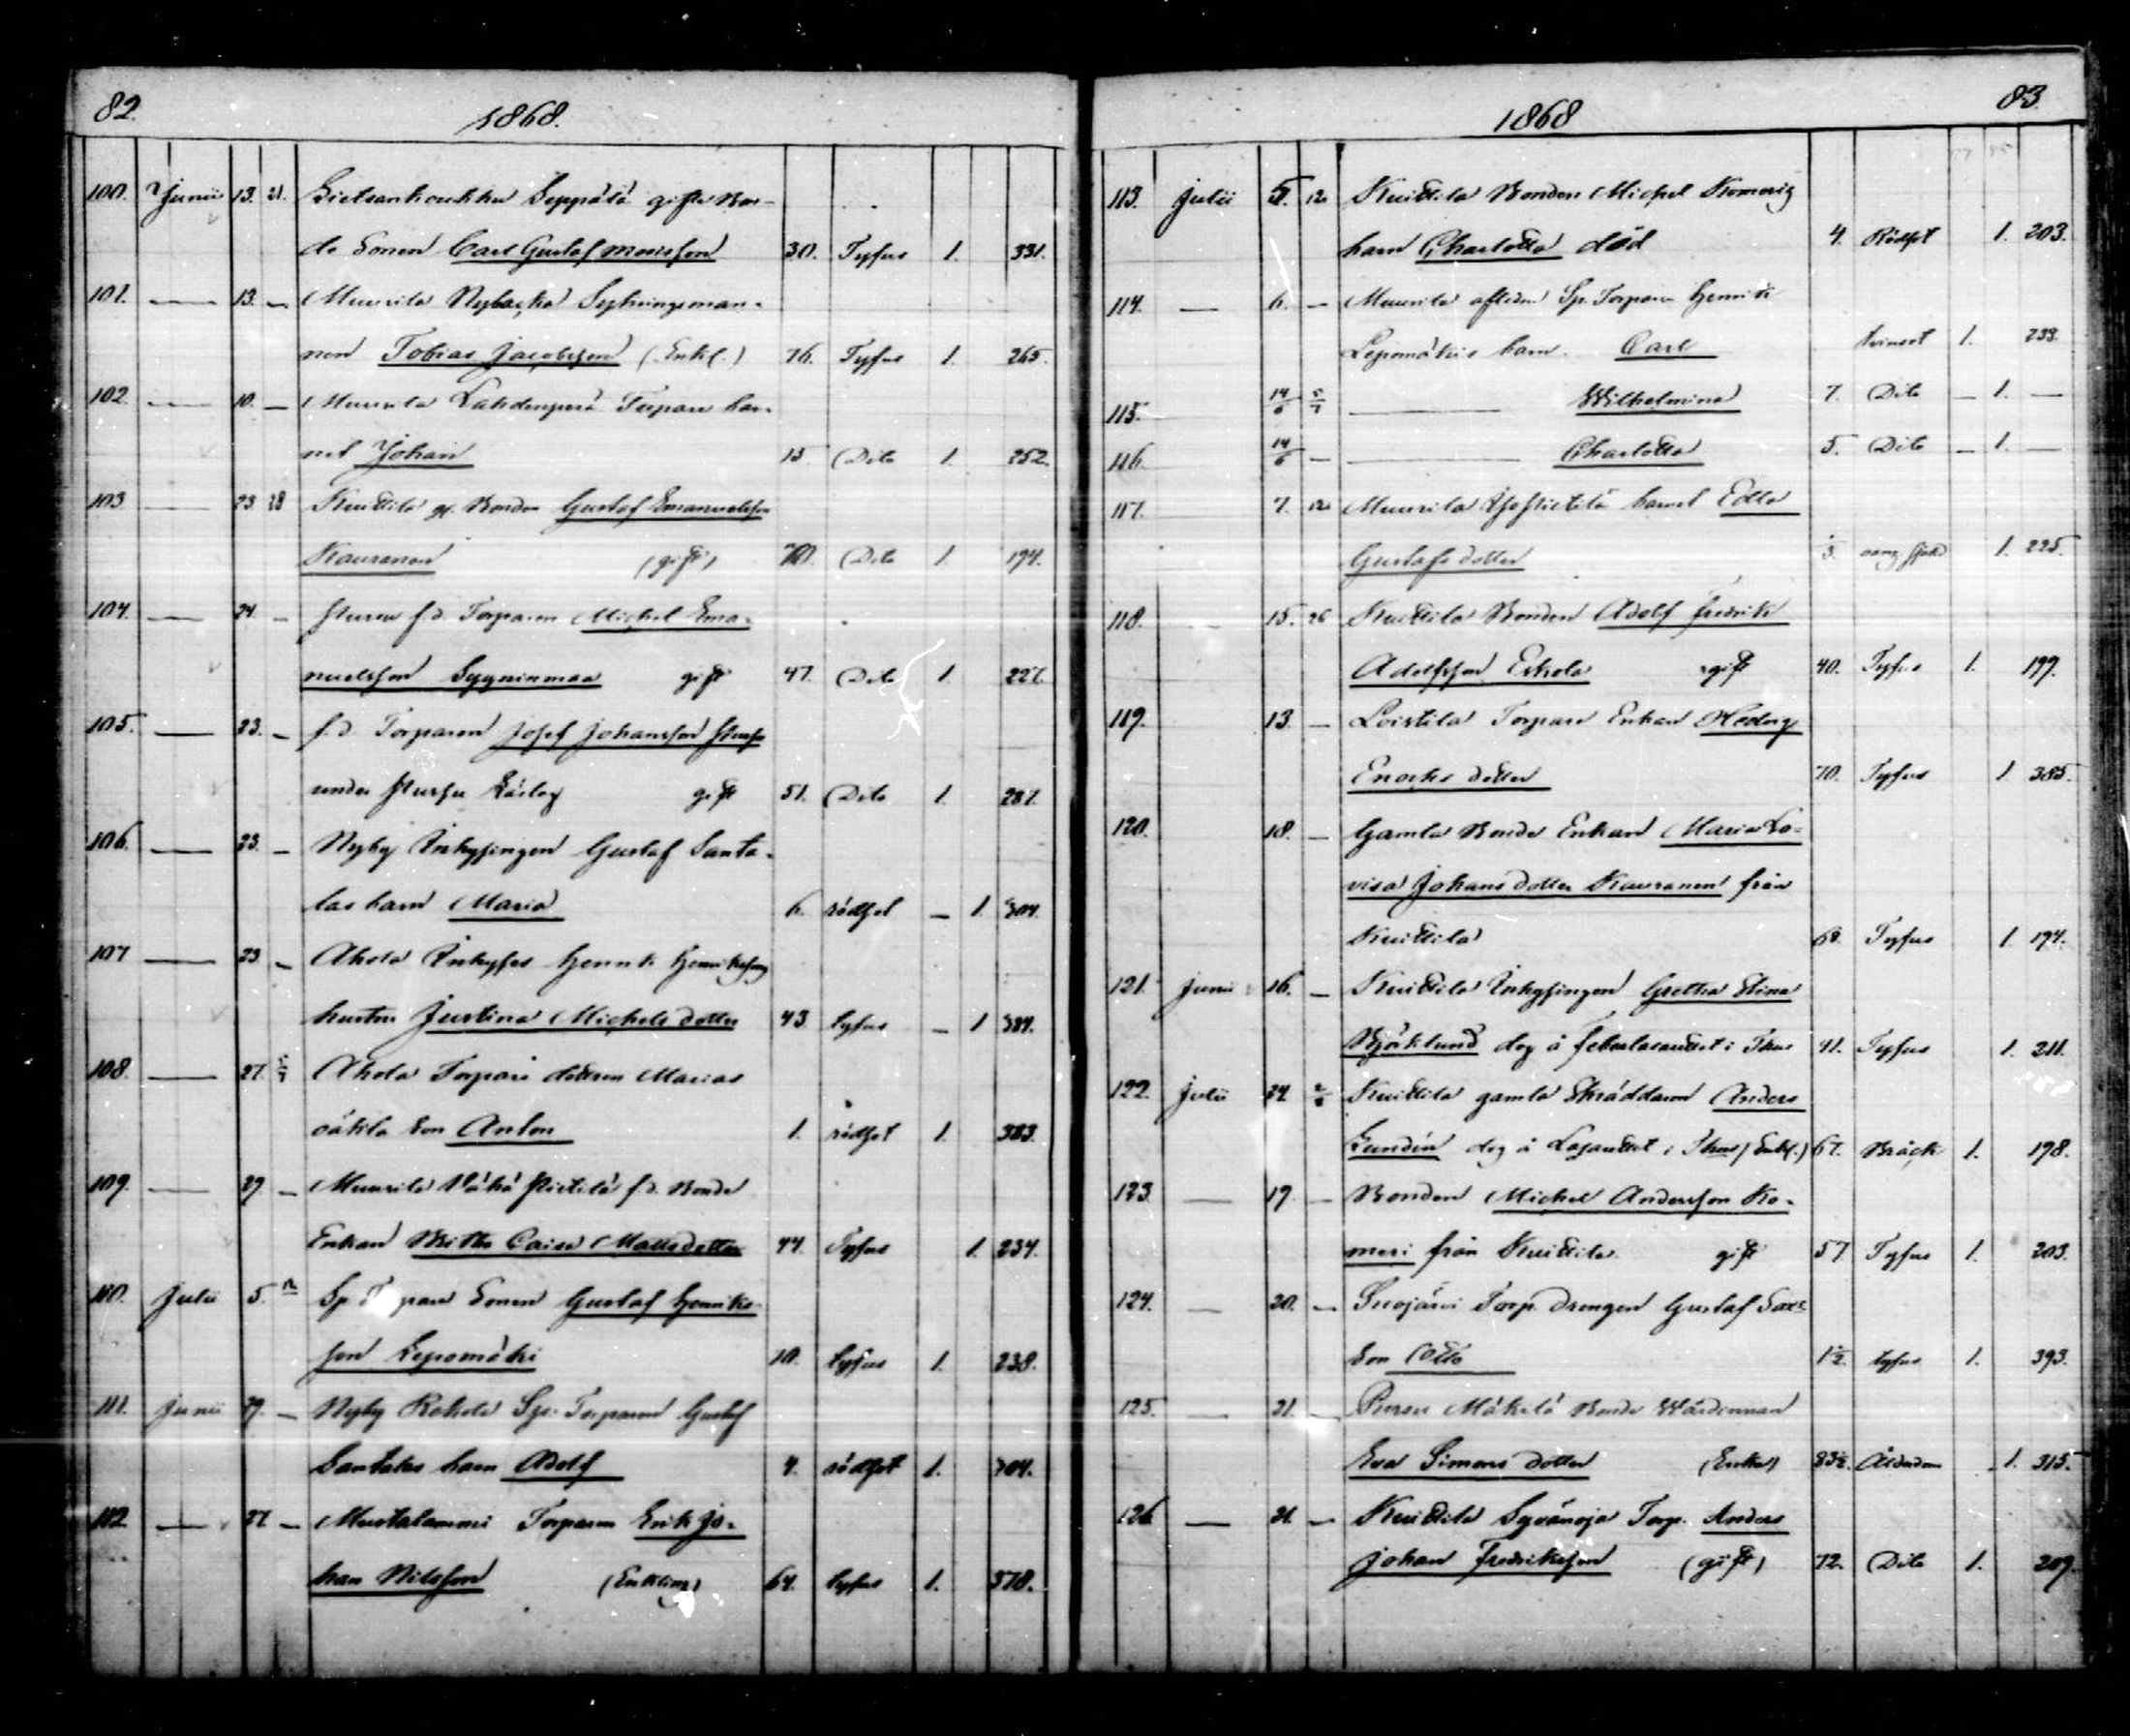 82.
1868.
100. Junii 13. 21. Seppälä gifte Bon-
de Sonen Carl Gustaf 30. Tyfus 1. 331.
101. — 13. — Muurila Nybacka Sytningsman-
nen Tobias Jacobsson (Enkl.) 76. Tyfus 1. 265.
102. — 10. — Muurila Lahdenperä Torpare bar-
net Johan 15 Dito 1. 252.
103 — 23 28 Knuttila gl. Bonden Gustaf Emanuelsson
Kauranen (gift) Dito 1 194.
104. — 24. — f.d. Torparen Michel Ema-
nuelsson Syyninmaa gift 47. Dito 1. 227.
105. — 23. — f.d. Torparen Josef Johansson
under gift 51. Dito 1. 281.
106. — 23. — Nyby Inhysingen Gustaf Santa-
las barn Maria 6. rödsot — 1. 304.
107 — 23 — Ahola Inhyses Henrik
hustru Justina Michels dotter 43 tyfus — 1 384.
108. — 27. 5/7 Ahola Torpare dottren Marias
oäkta Son Anton 1. rödsot 1. 383.
109. — 29 — Muurila Vähä Pietilä f.d. Bonde
Enkan Caisa Mattsdotter 44. Tyfus 1. 234.
110. Julii 5. 12 Sp. Torpare Sonen Gustaf Henriks-
son Lepomäki 10. tyfus 1. 238.
111. Junii 29. — Nyby Rohola Sp. Torparen Gustaf
Santalas barn Adolf 4. rödsot 1. 304.
112. — 27. — Mustalammi Torparen Erik Jo-
han Nilsson (Enkling) 64. tyfus 1. 378.
83
1868
113. Julii 5. 12. Knuttila Bonden Michel
barn Charlotta död 4. Rödsot 1. 203.
114. — 6. — Muurila aflidne Sp. Torparen Henrik
Lepomäkis barn Carl 1. 238.
115. 14/6 5/7 — Wilhelmina 7. Dito — 1. —
116. 14/6 — — Charlotta 5. Dito — 1. —
117. 7. 12. Muurila Isopietilä barnet Edla
Gustafs dotter 3. 1. 225.
118. — 15. 26 Knuttila Bonden Adolf Fredrik
Adolfsson Erkola gift 40. Tyfus 1. 199.
119. 13. — Loistila Torpare Enkan Hedvig
Enochs dotter 70. Tyfus 1 385.
120. 18. — Gamla Bonde Enkan Maria Lo-
visa Johans dotter Kauranen från
Knuttila 68. Tyfus 1. 194.
121. Junii 16. — Knuttila Inhysingen Gretha Stina
Björklund dog å i 41. Tyfus 1. 211.
122. Julii 24. Knuttila gamla Skräddaren Anders
Lundén dog å Lasarettet i (Enkl.) 67. Bråck 1. 198.
123 — 19. — Bonden Michel Andersson Ko-
meri från Knuttila gift 57 Tyfus 1. 203.
124. — 20. — Suojärvi Torp. Drengen Gustaf
Son Otto 1 1/2. tyfus 1. 393.
125. — 21. — Mäkelä Bonde Wärdinnan
Eva Simons dotter (Enka) Ålderdom 1. 315.
126 — 21. — Knuttila Syvänoja Torp. Anders
Johan Fredriksson (gift) 72. Dito 1. 209.